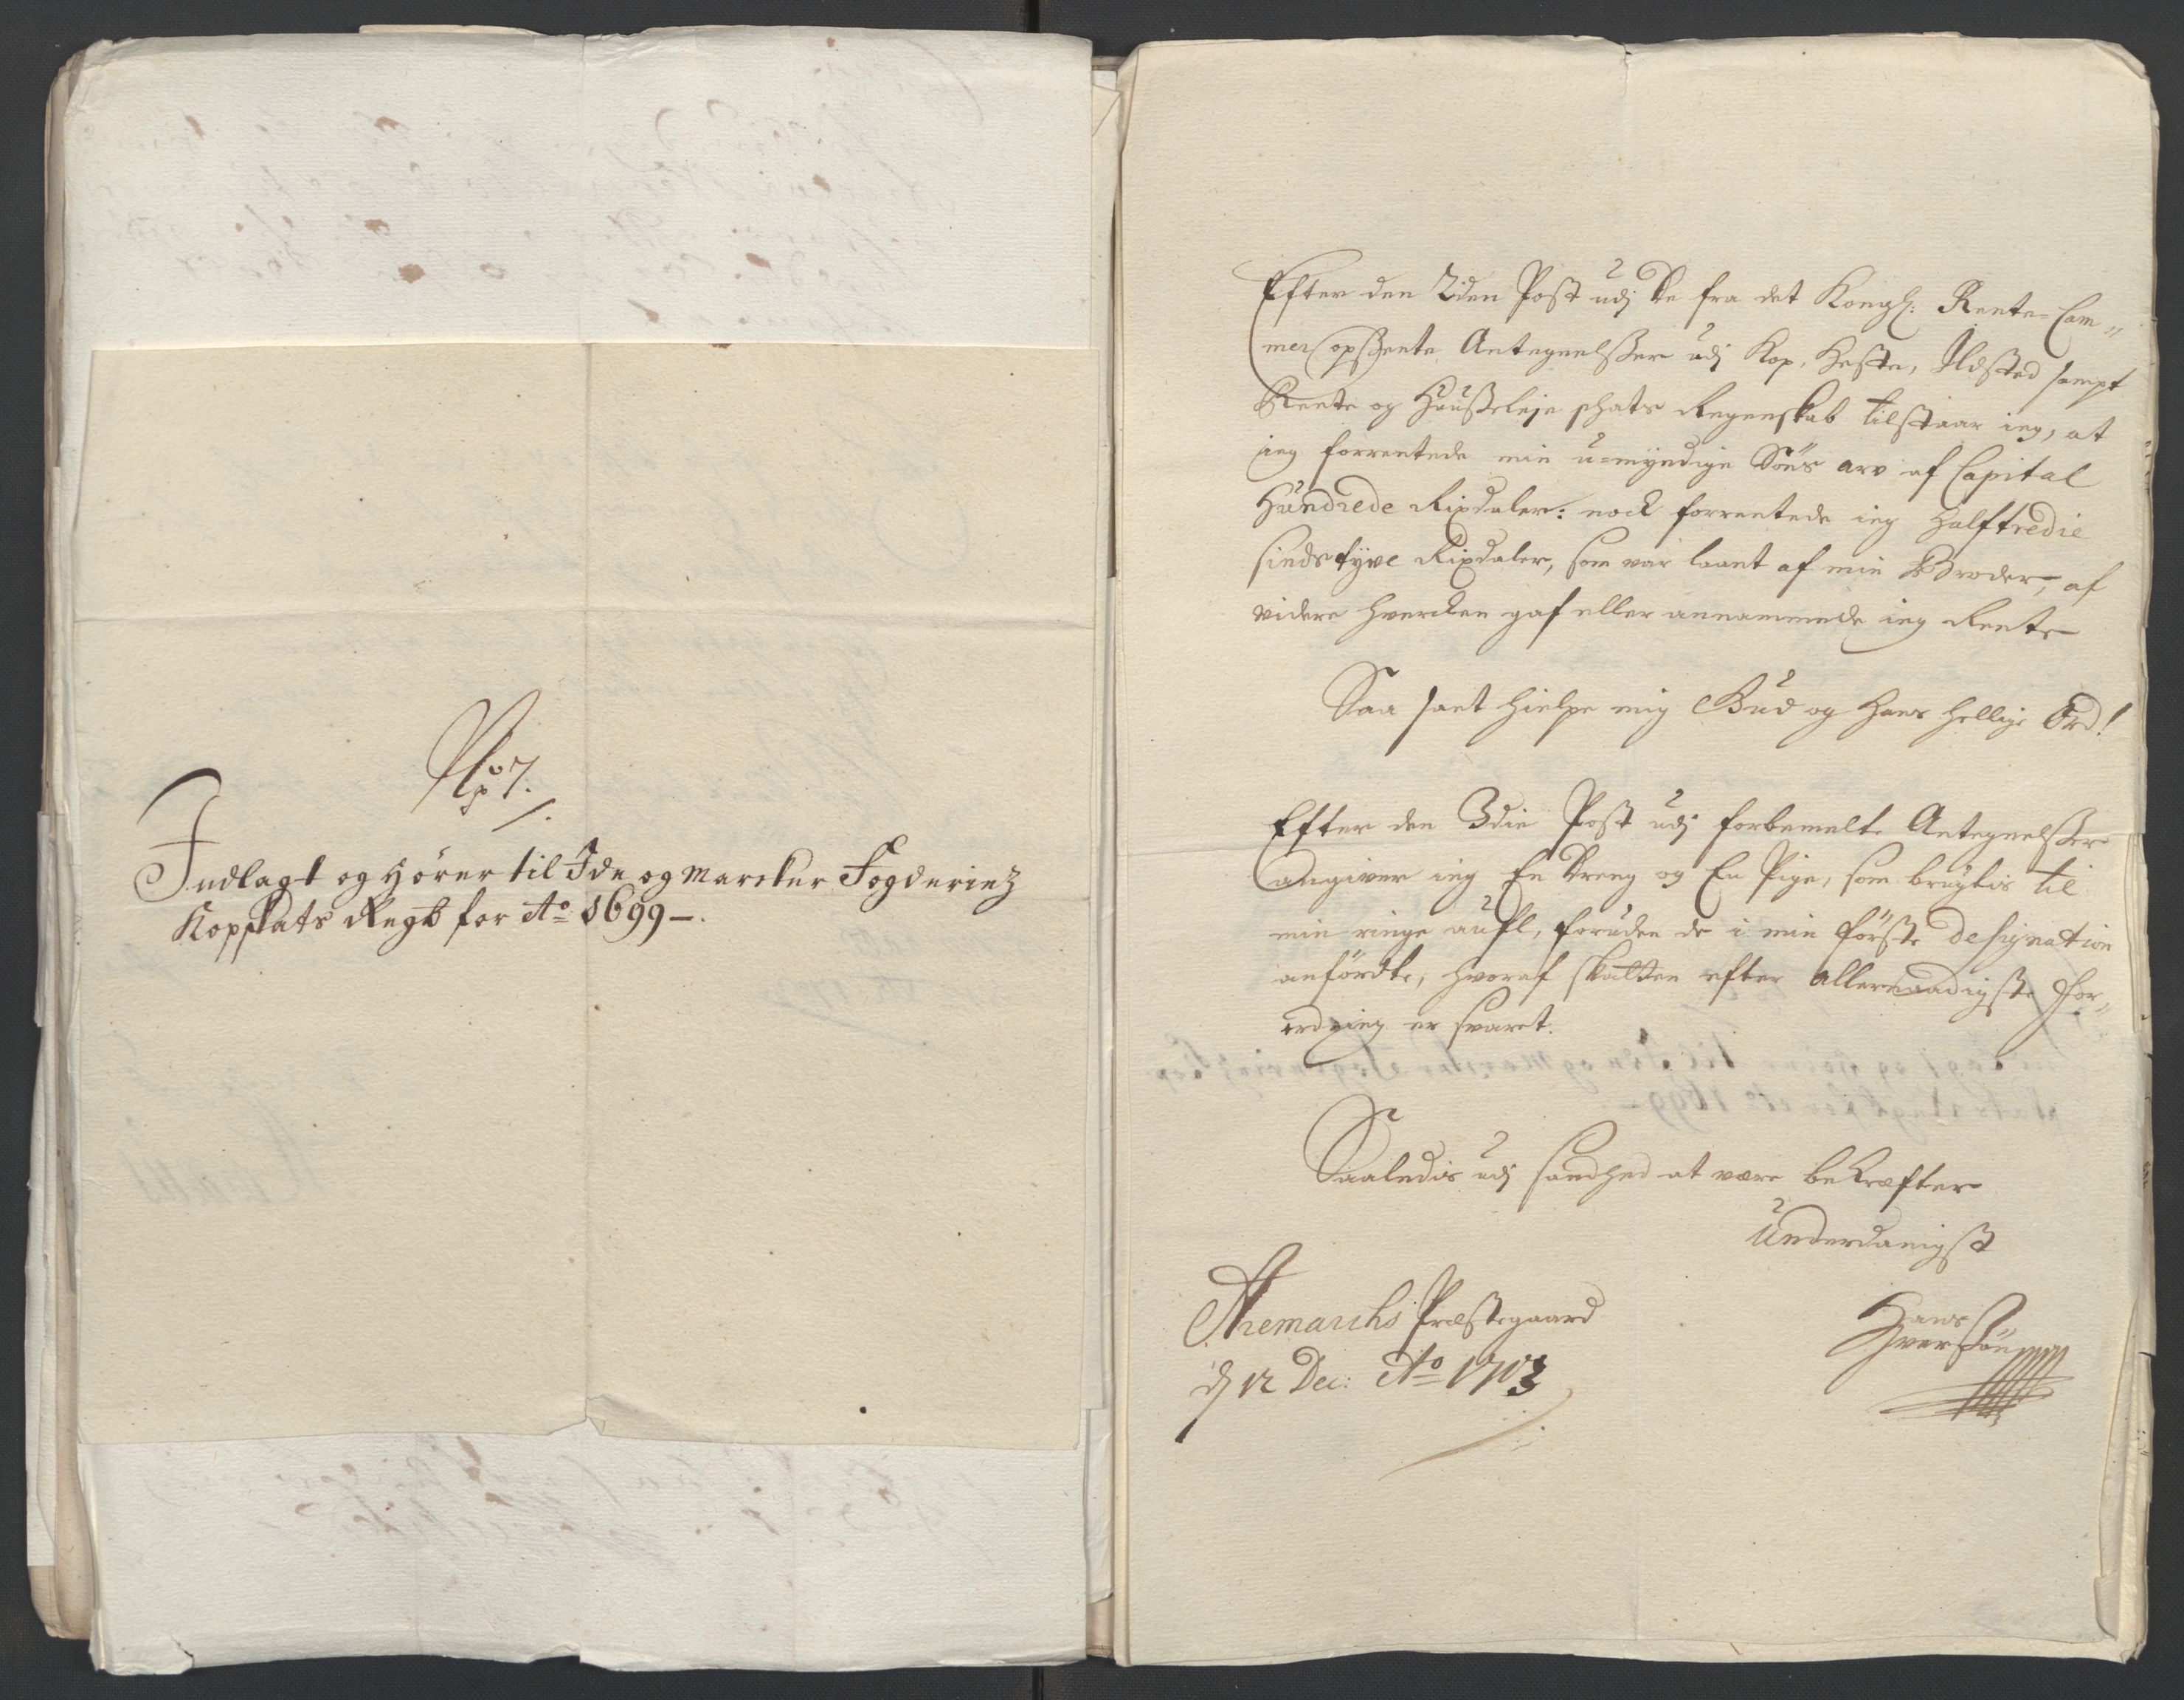 No 7.
Indlagt og Hörer til Ide og Marcker Fogderies
Kopskats Regb for Ao 1699 –.
Efter den 2den Post udj De fra det Kongl: Rente-Cam„
mer opsente Antegnelsser udj Kop, Heste, Ildsted sampt
Rente og Hüusleje schats Regenskab tilstaar ieg, at
ieg forrentede min u-myndige Söns arv af Capital
Hundrede Rixdaler: nock forrentede ieg Halftredie
sindstyve Rixdaler, som var laant af min Broder, af
videre hvercken gaf eller annammede ieg Rente
Saa sant hielpe mig Gud og Hans hellige Ord!
Efter den 3die Post udj forbemelte Antegnelsser
angiver ieg En Dreng og En Pige, som brugtis til
min ringe aufl, foruden de i min förste designation
anfördte, hvoraf skatten efter allernaadigste For„
ordning er svaret.
Saaledis udj sandhed at være bekræfter
Underdanigst
Aremarchs Præstegaard
d 12 Dec: Ao 1703
Hans
Iversön